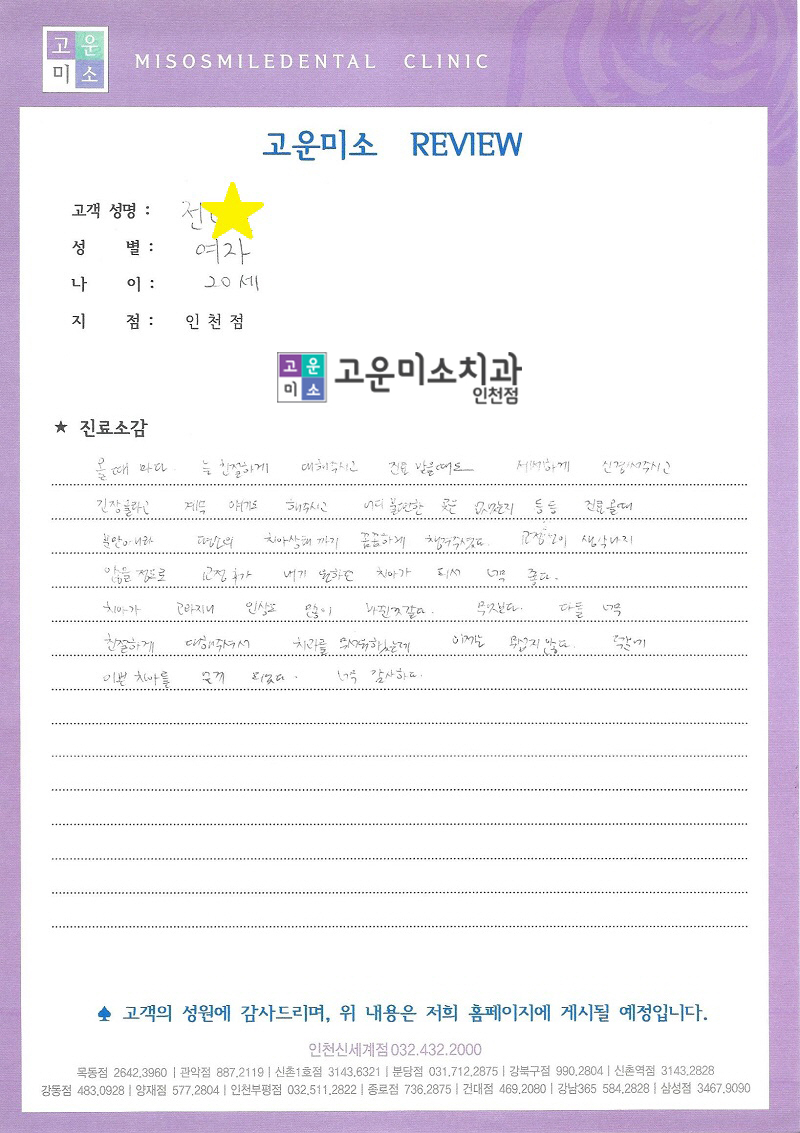 고운
미소
MISOSMILEDENTAL CLINIC
고운미소 REVIEW
고객 성명 : 전
성 별 : 여자
나 이 : 20세
지 점 : 인천점
고운
미소
고운미소치과
인천점
★ 진료소감
올때 마다 늘 친절하게 대해주시고 진료 받을때도 세세하게 신경써주시고
긴장풀라고 계속 얘기도 해주시고 어디 불편한 곳은 없는지 등등 진료올때
불안이나 평소의 치아상태까지 꼼꼼하게 챙겨주셨다. 교정 이 생각나지
않을 정도로 교정 후가 내가 원하던 치아가 되서 너무 좋다.
치아가 고바지니 인상도 많이 나진것같다. 무엇보다 다들 너무
친절하게 대해주셔서 치과를 무서워하는데 이제는 무섭지 않다. 덕분에
이쁜 치아를 갖게 되었다. 너무 감사하다.
♠ 고객의 성원에 감사드리며, 위 내용은 저희 홈페이지에 게시될 예정입니다.
인천신세계점 032.432.2000
목동점 2642,3960 | 관악점 887,2119 | 신촌1호점 3143,6321 | 분당점 031,712,2875 | 강북구점 990,2804 | 신촌역점 3143,2828
강동점 483,0928 | 양재점 577,2804 | 인천부평점 032,511,2822 | 종로점 736,2875 | 건대점 469,2080 | 강남365 584,2828 | 삼성점 3467,9090